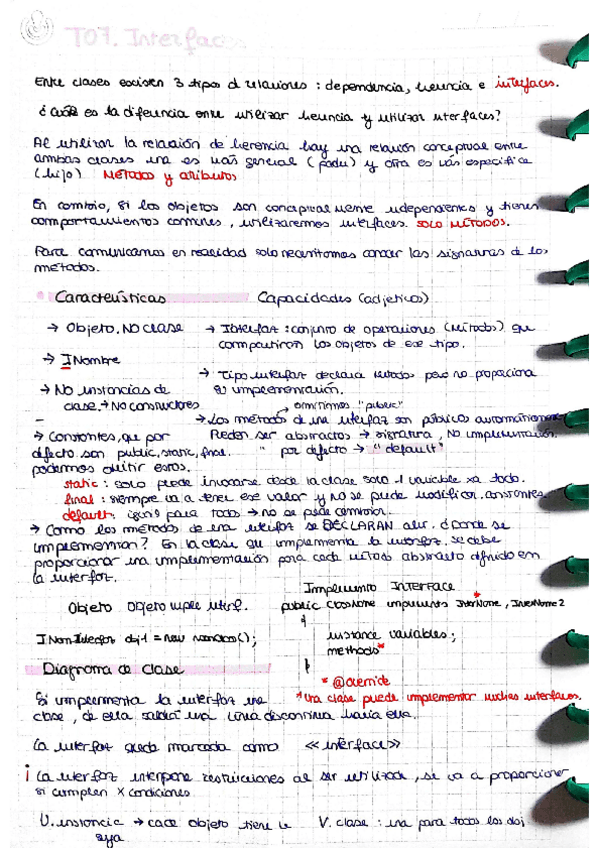 T07. Interfaces
Entre clases existen 3 tipos d relaciones : dependencia, herencia e interfaces.
¿Cuál es la diferencia entre utilizar herencia y utilizar interfaces?
Al utilizar la relación de herencia hay una relación conceptual entre
ambas clases una es más general (padre) y otra es más específica
(hijo) Métodos y atributos
En cambio, si los objetos son conceptualmente independientes y tienen
comportamientos comunes, utilizaremos interfaces. SOLO MÉTODOS.
Para comunicarnos en realidad solo necesitamos conocer las signaturas de los
métodos.
Características Capacidades (adjetivos)
→ Objeto. NO clase → Interfaz : conjunto de operaciones (métodos) que
compartiran los objetos de ese tipo.
→ INombre
→ Tipo interfaz declara método pero no proporciona
su implementación.
→ No instancias de
clase. → No constructores → omitimos "public"
→ Los métodos de una interfaz son públicos automáticamente
→ Constantes, que por Pueden ser abstractos → signatura, No implementación.
defecto son public, static, final. " por defecto → "default"
podemos omitir estos.
static : solo puede invocarse desde la clase solo 1 variable xa todo.
final : siempre va a tener ese valor y no se puede modificar. constantes
default : igual para todos → no se puede cambiar.
→ Como los métodos de una interfaz se DECLARAN ahí. ¿Donde se
implementan? En la clase que implementa la interfaz. Se debe
proporcionar una implementación para cada método abstracto definido en
la interfaz.
Implemento Interface
Objeto Objeto imple interf. public class Nome implements InterNome, InterNome2
{
INomInterfaz obj1 = new (); instance variables;
methods*
}
Diagrama de clase
* @Override
Si implementa la interfaz una * Una clase puede implementar muchas interfaces.
clase, de ella saldrá una línea discontinua hacia ella.
La interfaz queda marcada como << interface >>
¡ La interfaz interpone restricciones al ser utilizada, se va a proporcionar
si cumplen x condiciones
V. instancia → cada objeto tiene la V. clase : una para todos los obj.
suya